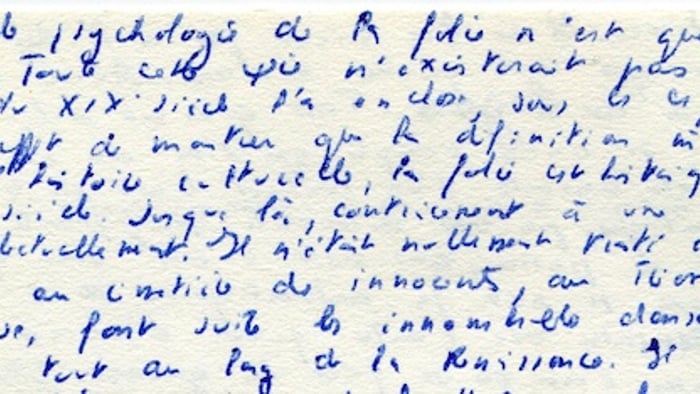 psychologie de la folie n'est que
Toute cette n'existerait pas
du XIXe siècle l'a enclose, sous
de montrer que la définition
histoire culturelle, la folie est
siècle. Jusque là, contrairement à une
. Il n'était nullement
au cimetière des innocents, au
font suite les innombrables danses
tout au long de la Renaissance. Il